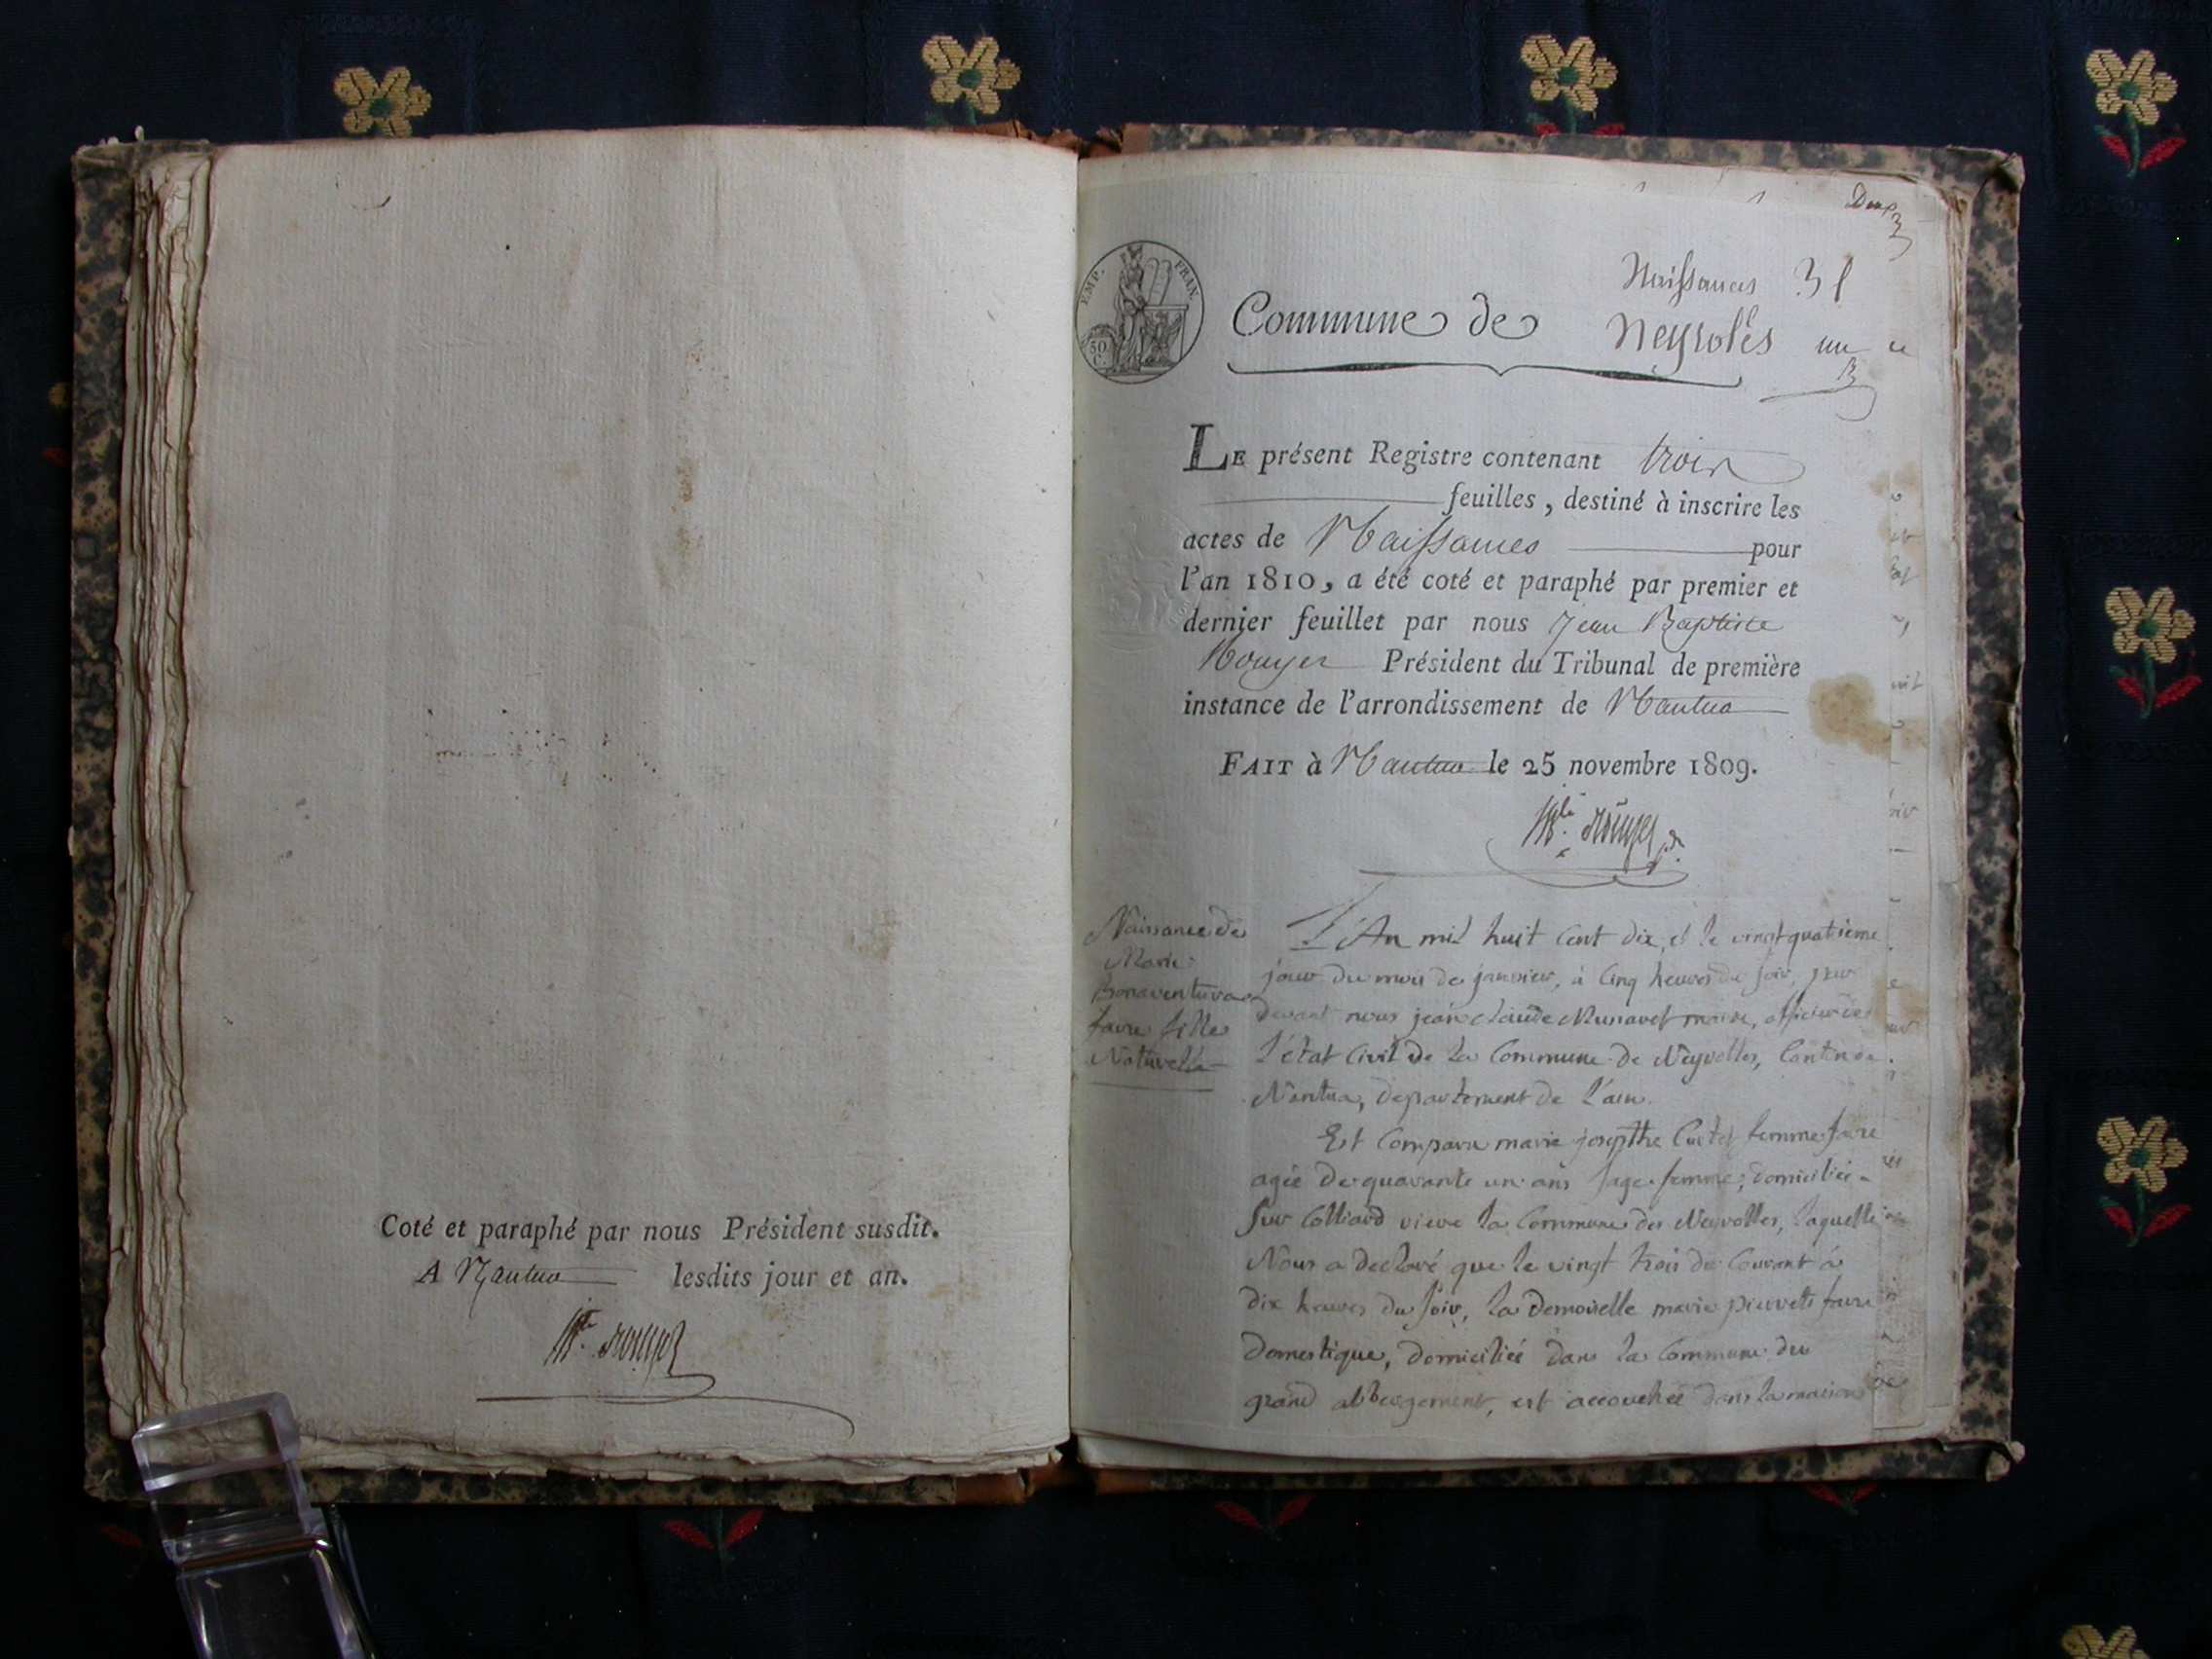 Coté et paraphé par nous Président susdit.
A Nantua lesdits jour et an.
EMP. FRAN.
50
C.
Naissances 3 f
Commune de Neyrolles un
LE présent Registre contenant trois
feuilles, destiné à inscrire les
actes de Naissances pour
l'an 1810, a été coté et paraphé par premier et
dernier feuillet par nous Jean Baptiste
Rouyer Président du Tribunal de première
instance de l'arrondissement de Nantua
FAIT à Nantua le 25 novembre 1809.
Bte. Rouyer
Naissance de
Marie
Bonaventure
favre fille
Naturelle
L'An mil huit Cent dix, et le vingt quatrieme
jour du mois de janvier, à Cinq heures du soir, par
devant nous jean claude Munavet maire, officier de
l'état Civil de la Commune de Neyrolles, Canton de
Nantua, departement de l'ain.
Est Comparu marie josephte femme favre
agée de quarante un ans sage femme, domiciliée
Sur Colliard rierre la Commune des Neyrolles, laquelle
Nous a declaré que le vingt trois du Courant à
dix heures du soir, la demoiselle marie pierrette favre
domestique, domiciliée dans la Commune du
grand abbergement, est accouchée dans la maison